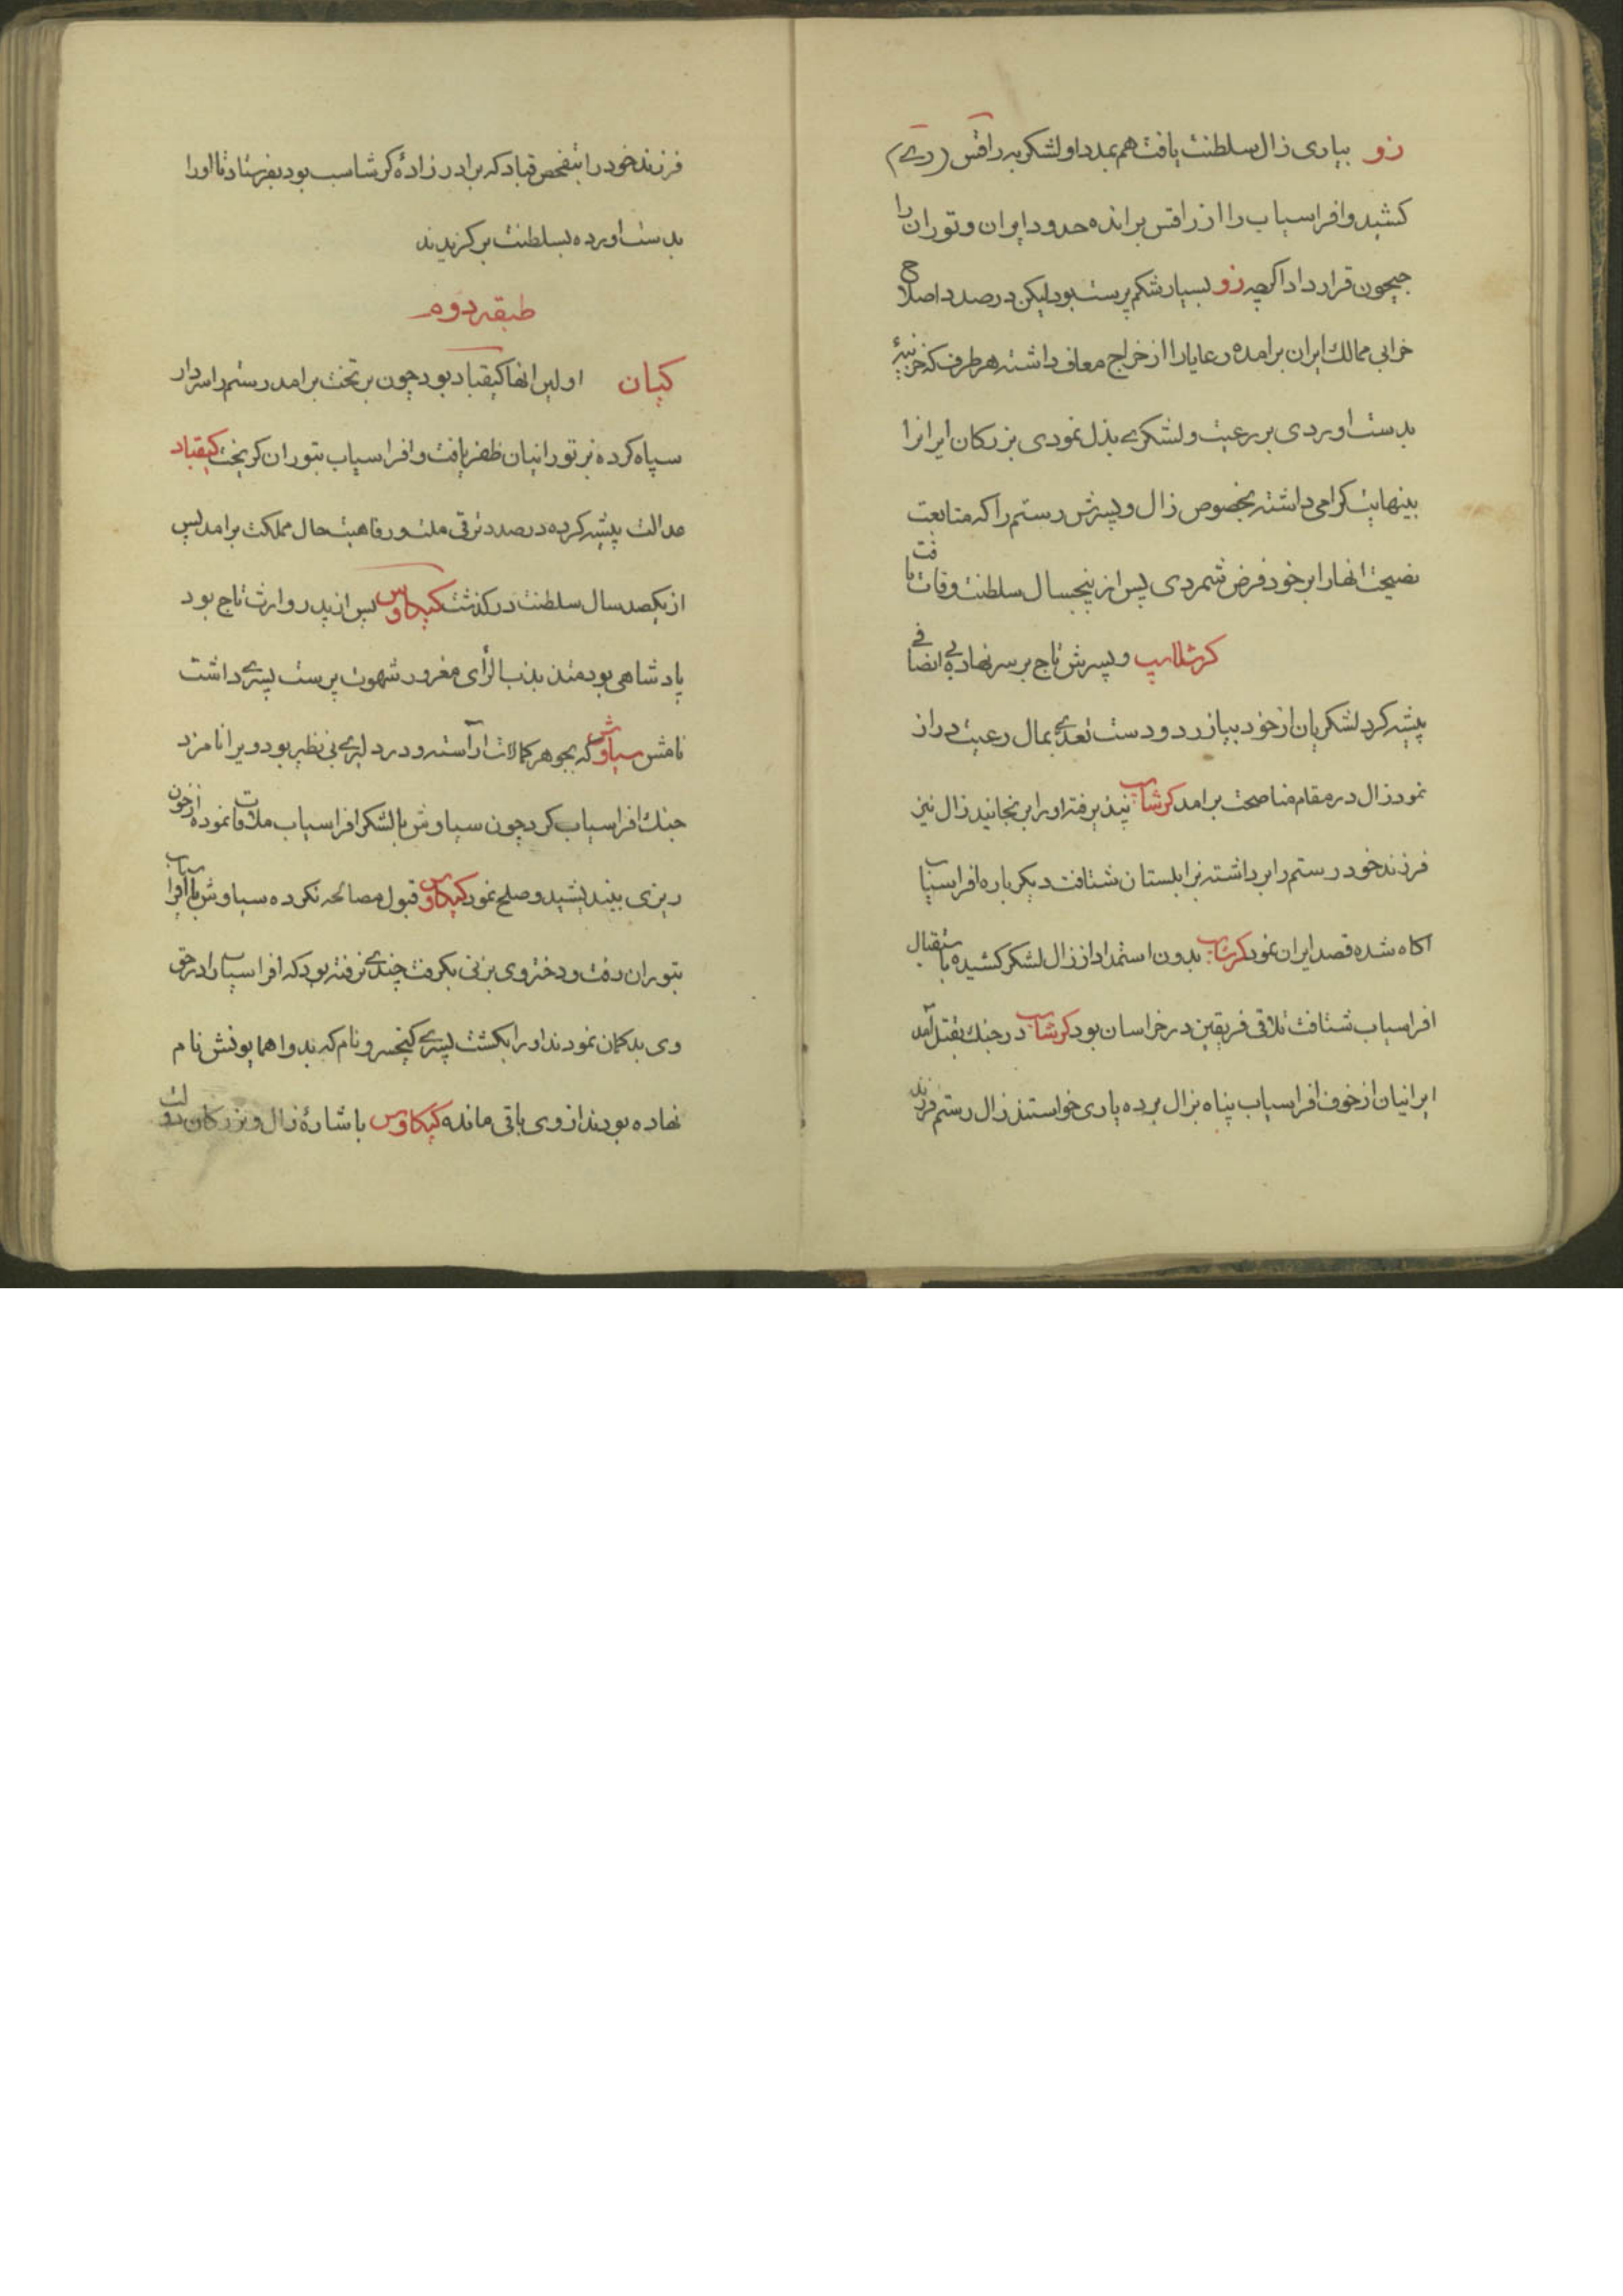 زو بیاری زال سلطنت یافت هم بمدد او لشکر به راقس (ری)
کشید و افراسیاب را از راقس برانده حدود ایران و توران را
جیحون قرار داد اکرچه زو بسیار شکم پرست بود لیکن در صدد اصلاح
خرابی ممالک ایران برامده رعایا را از خراج معاف داشته هر طرف که خزینهٔ
بدست اوردی بر رعیت و لشکری بذل نمودی بزرکان ایرانرا
بینهایت کرامی داشته بخصوص زال و پسرش رستم را که متابعت
نصیحت انها را بر خود فرض شمردی پس از پنجسال سلطنت وفات یافت
کرشاسب و پسرش تاج بر سر نهاد بی انصافی
پیشه کرد لشکریان از خود بیازرد و دست تعدی بمال رعیت دراز
نمود زال در مقام مناصحت برامد کرشاسب نپذیرفته او را برنجانید زال نیز
فرزند خود رستم را برداشته بزابلستان شتافت دیکر باره افراسیاب
اکاه شده قصد ایران نمود کرشاسب بدون استمداد از زال لشکر کشیده باستقبال
افراسیاب شتافت تلاقی فریقین در خراسان بود کرشاسب در جنک بقتل آمد
ایرانیان از خوف افراسیاب پناه بزال برده یاری خواستند زال رستم فرزند
فرزند خود را بتفحص قباد که برادر زادهٔ کرشاسب بود بفرستاد تا اورا
بدست اورده بسلطنت برکزیدند
طبقه دوم
کیان اولین انها کیقباد بود چون بر تخت برامد رستم را سردار
سپاه کرده بر تورانیان ظفر یافت و افراسیاب بتوران کریخت کیقباد
عدالت پیشه کرده در صدد ترقی ملت و رفاهیت حال مملکت برامد پس
از یکصد سال سلطنت درکذشت کیکاوس پس از پدر وارث تاج بود
پادشاهی بود متذبذب الرأی مغرور شهوت پرست پسری داشت
نامش سیاوش که بجوهر کمالات آراسته و در دلیری بی نظیر بود ویرا نامزد
جنک افراسیاب کرد چون سیاوش با لشکر افراسیاب ملاقات نموده از خون
ریزی بیندیشید و صلح نمود کیکاوس قبول مصالحه نکرده سیاوش با افراسیاب
بتوران رفت و دختر وی بزنی بکرفت چندی نرفته بود که افراسیاب را در حق
وی بدکمان نمودند او را بکشت پسری کیخسرو نام که بدو اهمایونش نام
نهاده بودند از وی باقی مانده کیکاوس باشارهٔ زال و بزرکان دولت